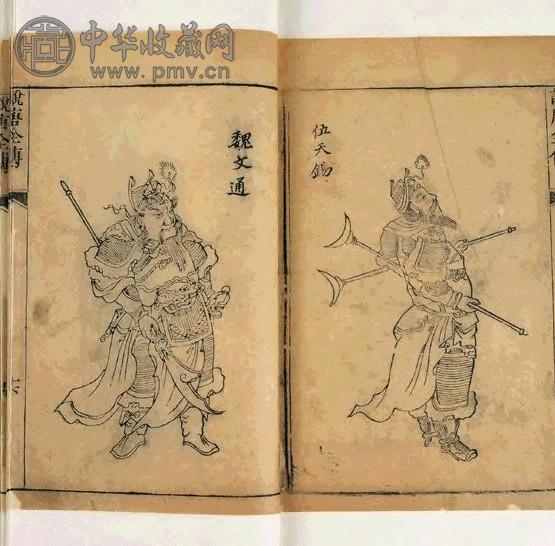 中华收藏网
www.pmv.cn
伍天錫
魏文通
說唐全傳